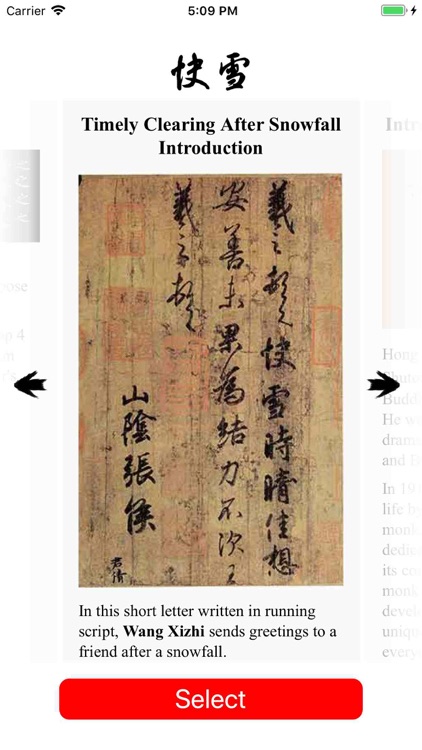 Carrier
5:09 PM
快雪
Timely Clearing After Snowfall
Introduction
羲之頓首快雪時晴佳想
安善未果為結力不次王
羲之頓首
山陰張侯
君倩
In this short letter written in running
script, Wang Xizhi sends greetings to a
friend after a snowfall.
pose
Intr
Hong
Budd
He w
drama
and B
In 19
life by
monk
dedic
its co
monk
devel
uniqu
every
Select